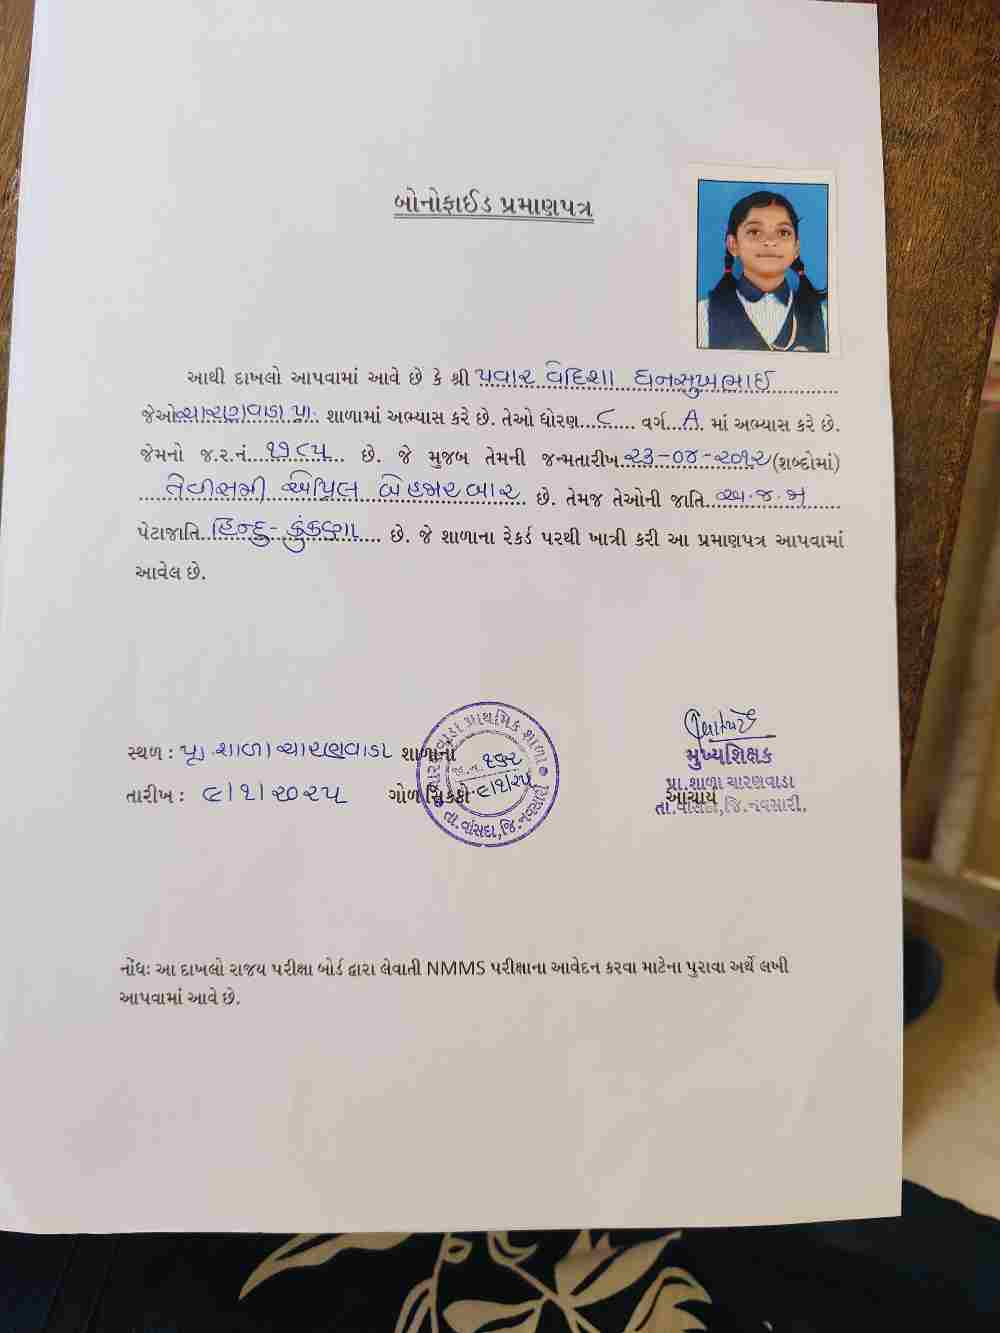 બોનોફાઈડ પ્રમાણપત્ર
આથી દાખલો આપવામાં આવે છે કે શ્રી પવાર વેદિશા ધનસુખભાઈ
જેઓ ચારણવાડા પ્રા. શાળામાં અભ્યાસ કરે છે. તેઓ ધોરણ...૮..... વર્ગ...A... માં અભ્યાસ કરે છે.
જેમનો જ.ર.નં....૧૭૮૫... છે. જે મુજબ તેમની જન્મતારીખ ૨૩-૦૪-૨૦૧૨ (શબ્દોમાં)
તેવીસમી એપ્રિલ બેહજાર બાર છે. તેમજ તેઓની જાતિ અ.જ.જા
પેટાજાતિ હિન્દુ- કુંકણા છે. જે શાળાના રેકર્ડ પરથી ખાત્રી કરી આ પ્રમાણપત્ર આપવામાં
આવેલ છે.
સ્થળ : પ્રા. શાળા ચારણવાડા શાળાનો
તારીખ : ૯/૧/૨૦૨૫ ગોળ સિક્કો
ચારણવાડા પ્રાથમિક શાળા
જા.નં. ૧૭૨
૯/૧/૨૫
તા.વાંસદા,જિ.નવસારી
મુખ્યશિક્ષક
પ્રા.શાળા ચારણવાડા
આચાર્ય
તા.વાંસદા,જિ.નવસારી.
નોંધઃ આ દાખલો રાજય પરીક્ષા બોર્ડ દ્વારા લેવાતી NMMS પરીક્ષાના આવેદન કરવા માટેના પુરાવા અર્થે લખી
આપવામાં આવે છે.